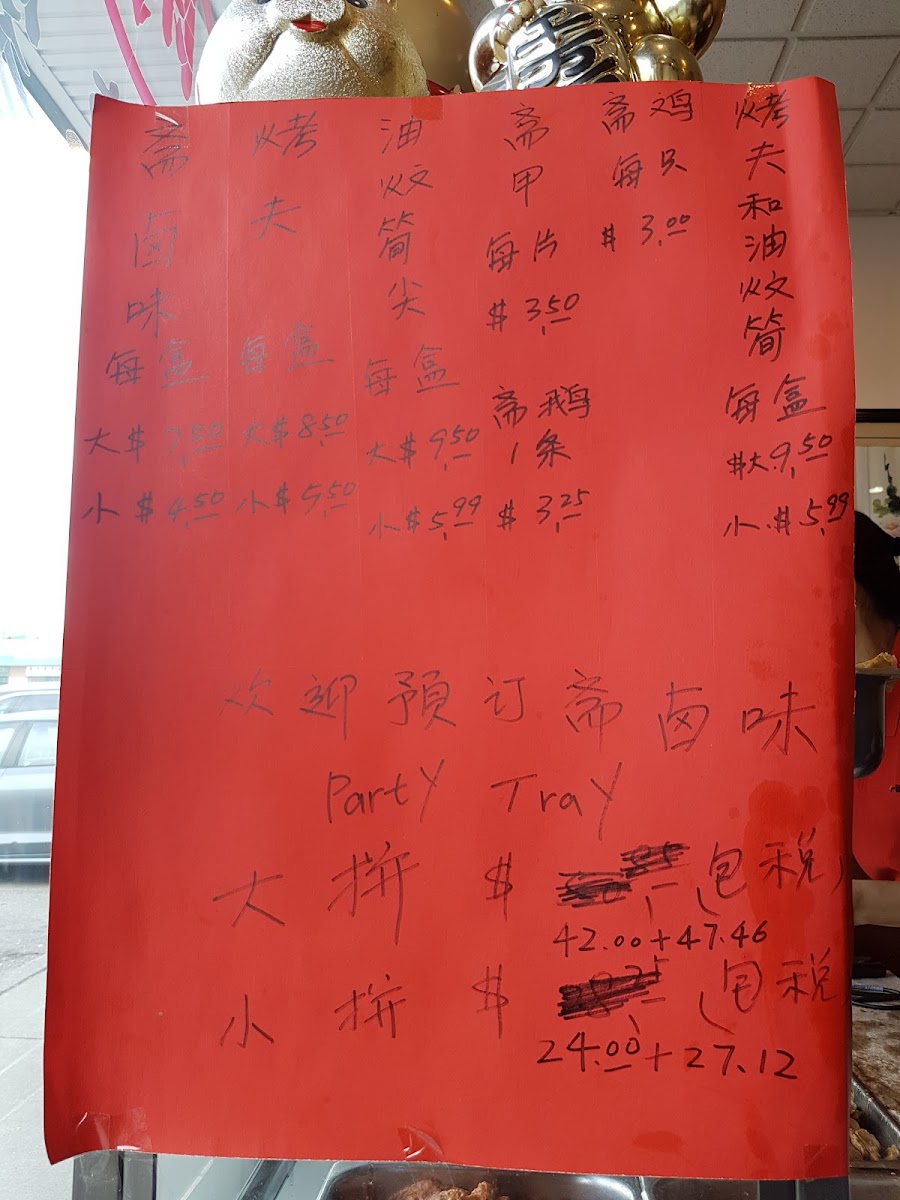 斋卤味
每盒
大$ 7.50
小$ 4.50
烤夫
每盒
大$ 8.50
小$ 5.50
油炆筒尖
每盒
大$ 9.50
小$ 5.99
斋甲
每片
$ 3.50
斋鹅
1条
$ 3.25
斋鸡
每只
$ 3.00
烤夫和油炆筒
每盒
$大.9.50
小.$ 5.99
欢迎预订斋卤味
Party Tray
大拼 $ (包税)
42.00+47.46
小拼 $ (包税
24.00+27.12